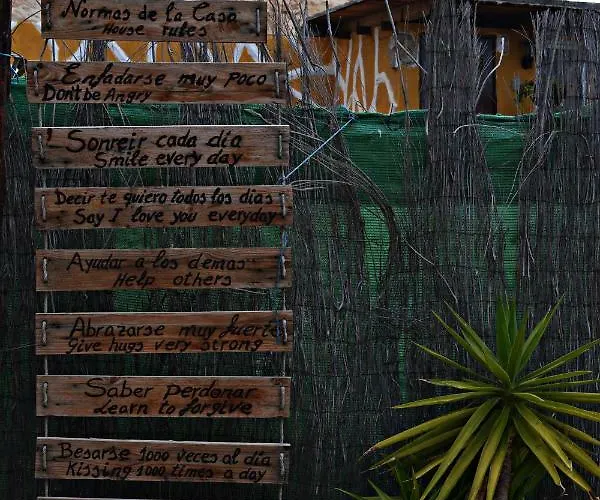 Normas de la Casa
House rules
Enfadarse muy poco
Don't be Angry
Sonreir cada dia
Smile every day
Decir te quiero todos los dias
Say I love you everyday
Ayudar a los demas
Help others
Abrazarse muy fuerte
Give hugs very strong
Saber perdonar
Learn to forgive
Besarse 1000 veces al dia
Kissing 1000 times a day